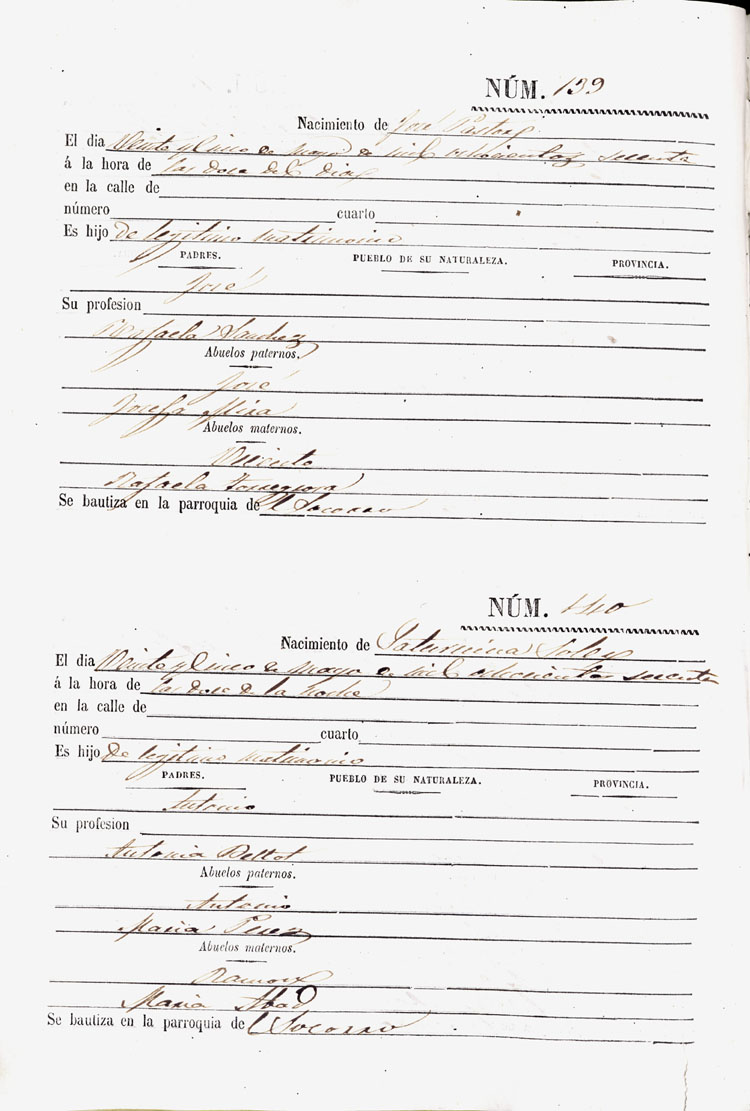 NÚM. 139
Nacimiento de José Pastor
El dia Veinte y Cinco de Mayo de mil ochocientos sesenta
á la hora de las doce del dia
en la calle de
número cuarto
Es hijo de legitimo matrimonio
PADRES. PUEBLO DE SU NATURALEZA. PROVINCIA.
José
Su profesion
Rafaela Sanchez
Abuelos paternos.
José
Josefa Mira
Abuelos maternos.
Vicente
Rafaela
Se bautiza en la parroquia de el Socorro
NÚM. 140
Nacimiento de Saturnina Soler
El dia Veinte y Cinco de Mayo de mil ochocientos sesenta
á la hora de las doce de la Noche
en la calle de
número cuarto
Es hijo de legitimo matrimonio
PADRES. PUEBLO DE SU NATURALEZA. PROVINCIA.
Antonio
Su profesion
Antonia
Abuelos paternos.
Antonio
Maria Perez
Abuelos maternos.
Ramon
Maria Abad
Se bautiza en la parroquia de el Socorro